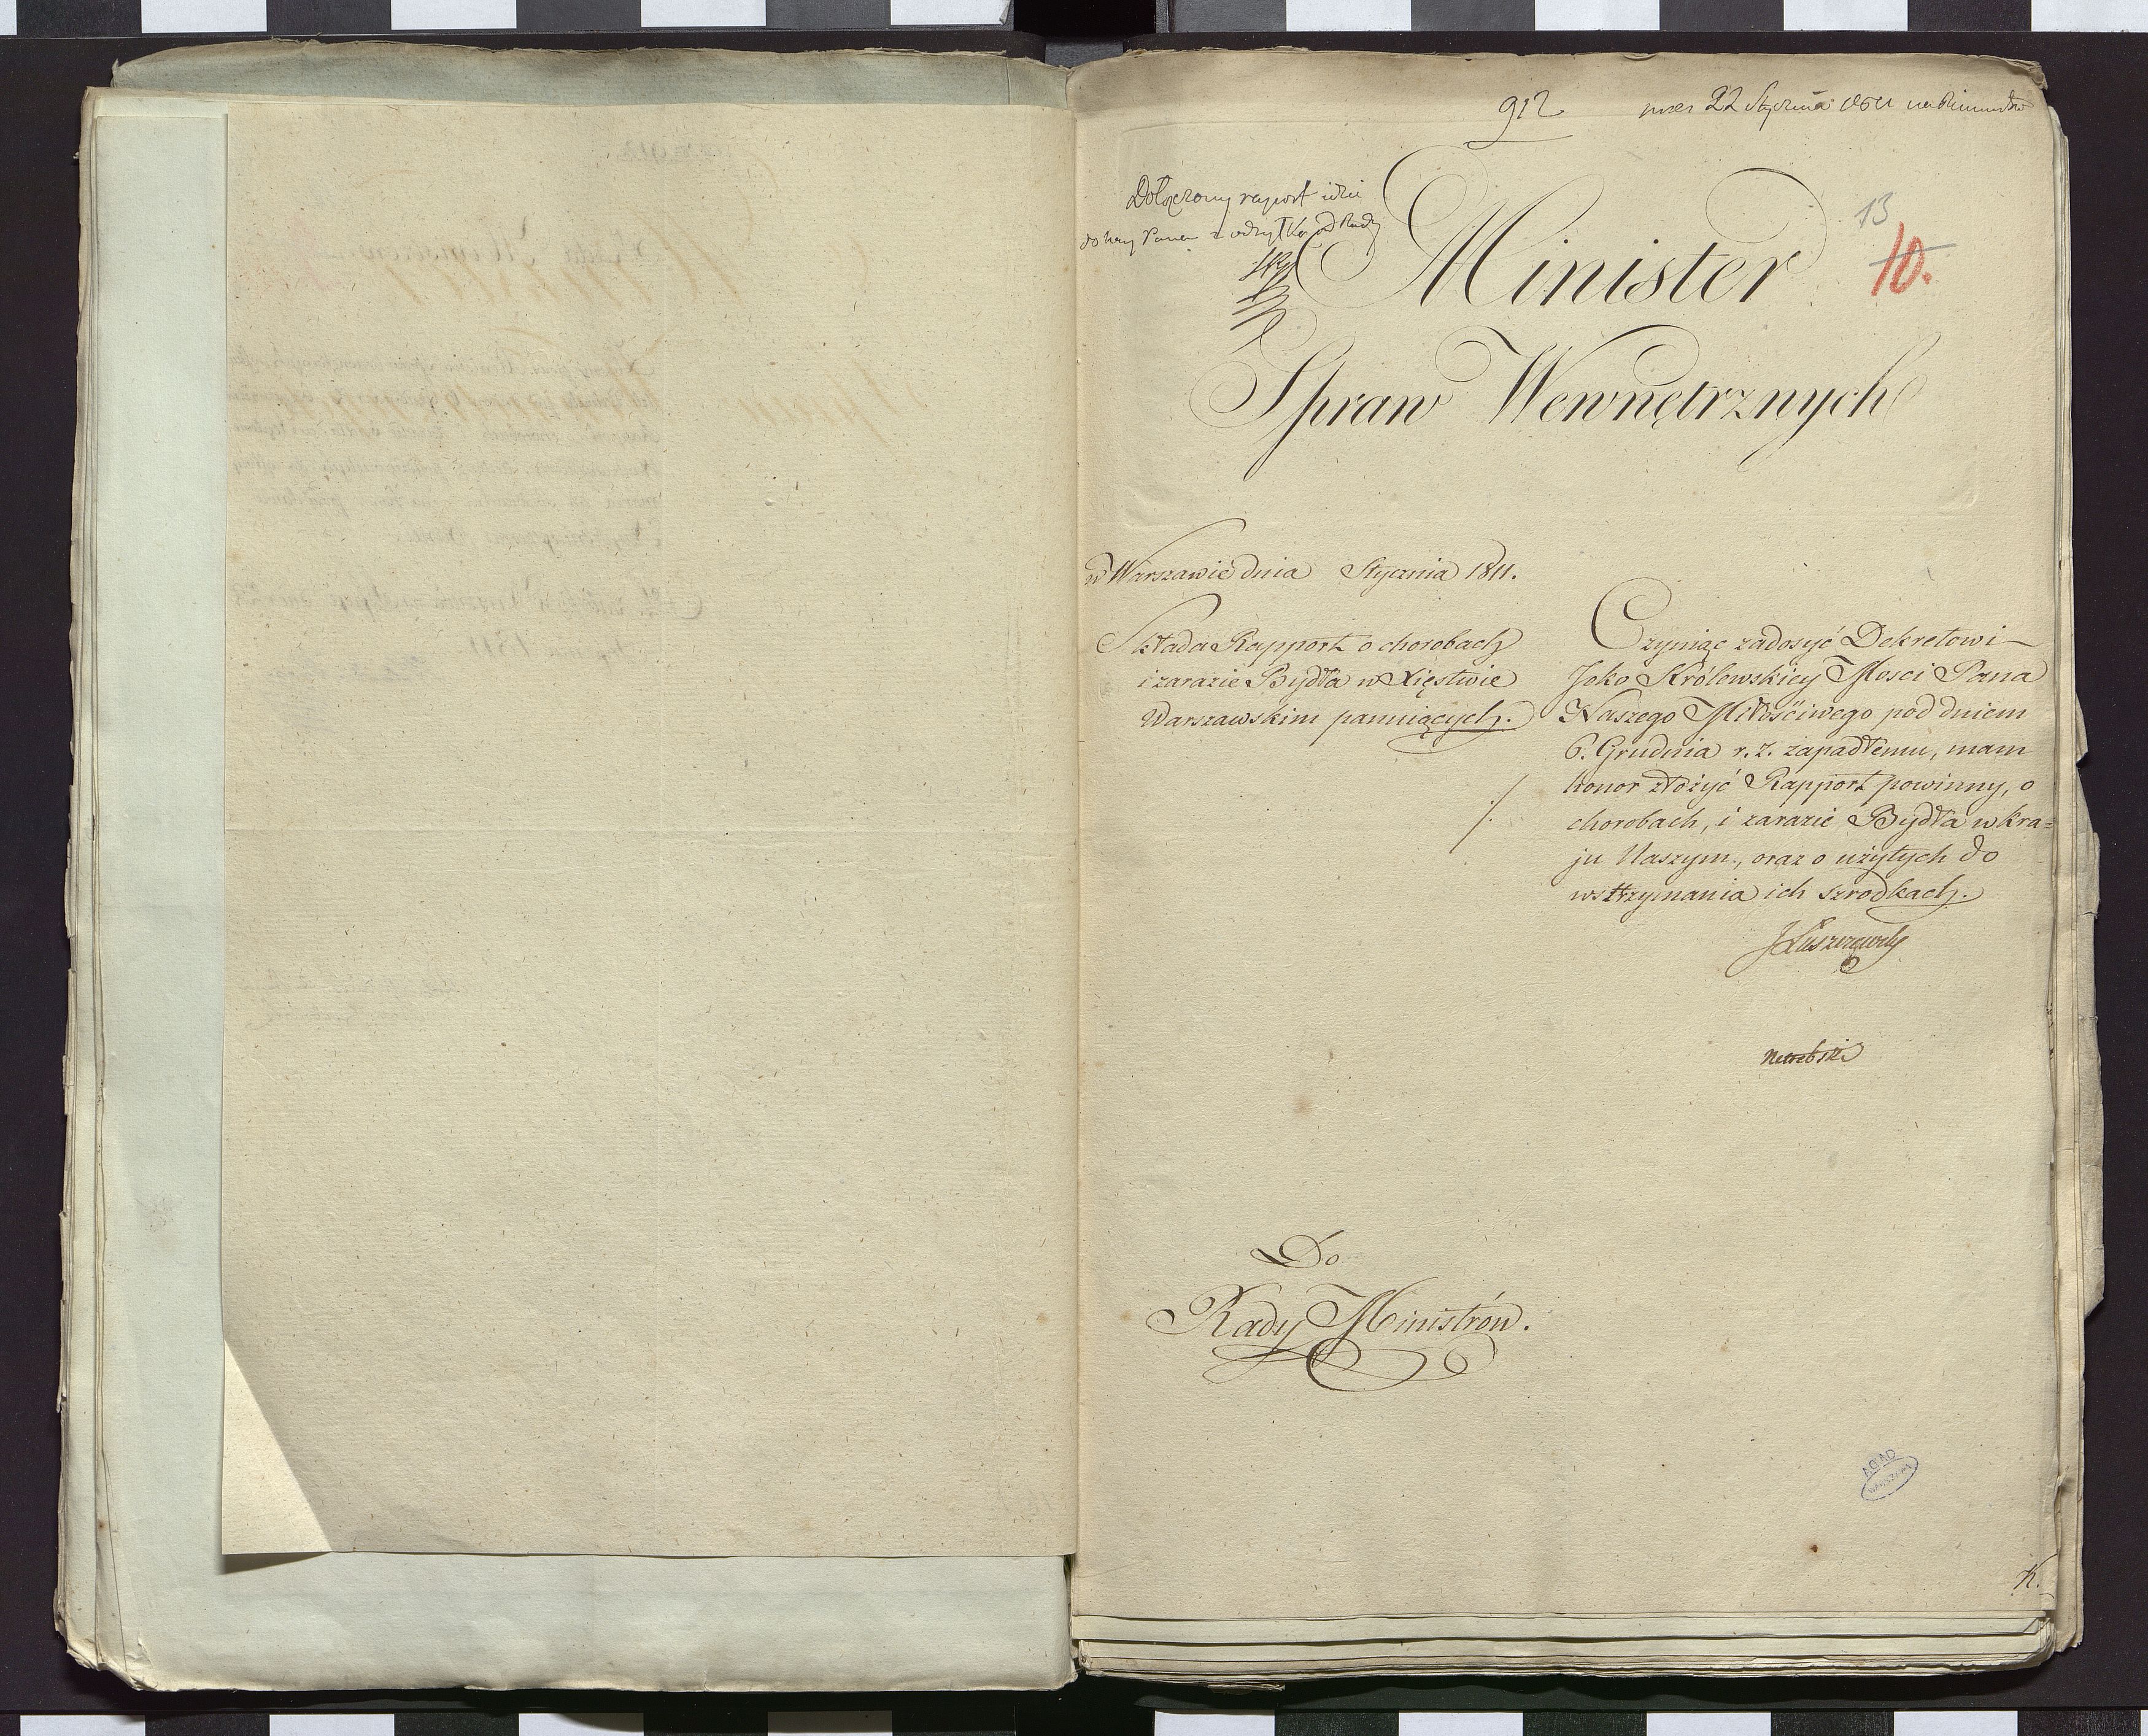 912
22 Stycznia 1811
Dołączony raport idzie
do Nay Pana z
13
10.
Minister
Spraw Wewnętrznych
w Warszawie dnia Stycznia 1811.
Składa Rapport o chorobach
i zarazie Bydła w Xięstwie
Warszawskim panuiących.
Czyniąc zadosyć Dekretowi
Jeko Królewskiey Mosci Pana
Naszego Miłościwego pod dniem
6. Grudnia r. z. zapadłemu, mam
honor złożyć Rapport powinny, o
chorobach, i zarazie Bydła w kra=
ju Naszym, oraz o użytych do
wstrzymania ich szrodkach.
JŁuszczewsky
Do
Rady Ministrów.
AGAD
WARSZAWA
K.